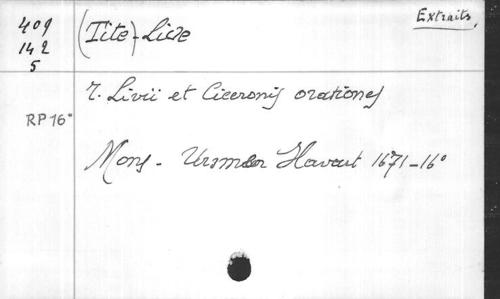 409
142
5
(Tite)-Live
Extraits
T. Livii et Ciceronis orationes
RP 16°
Mons - Ursmer Havart 1671-16°